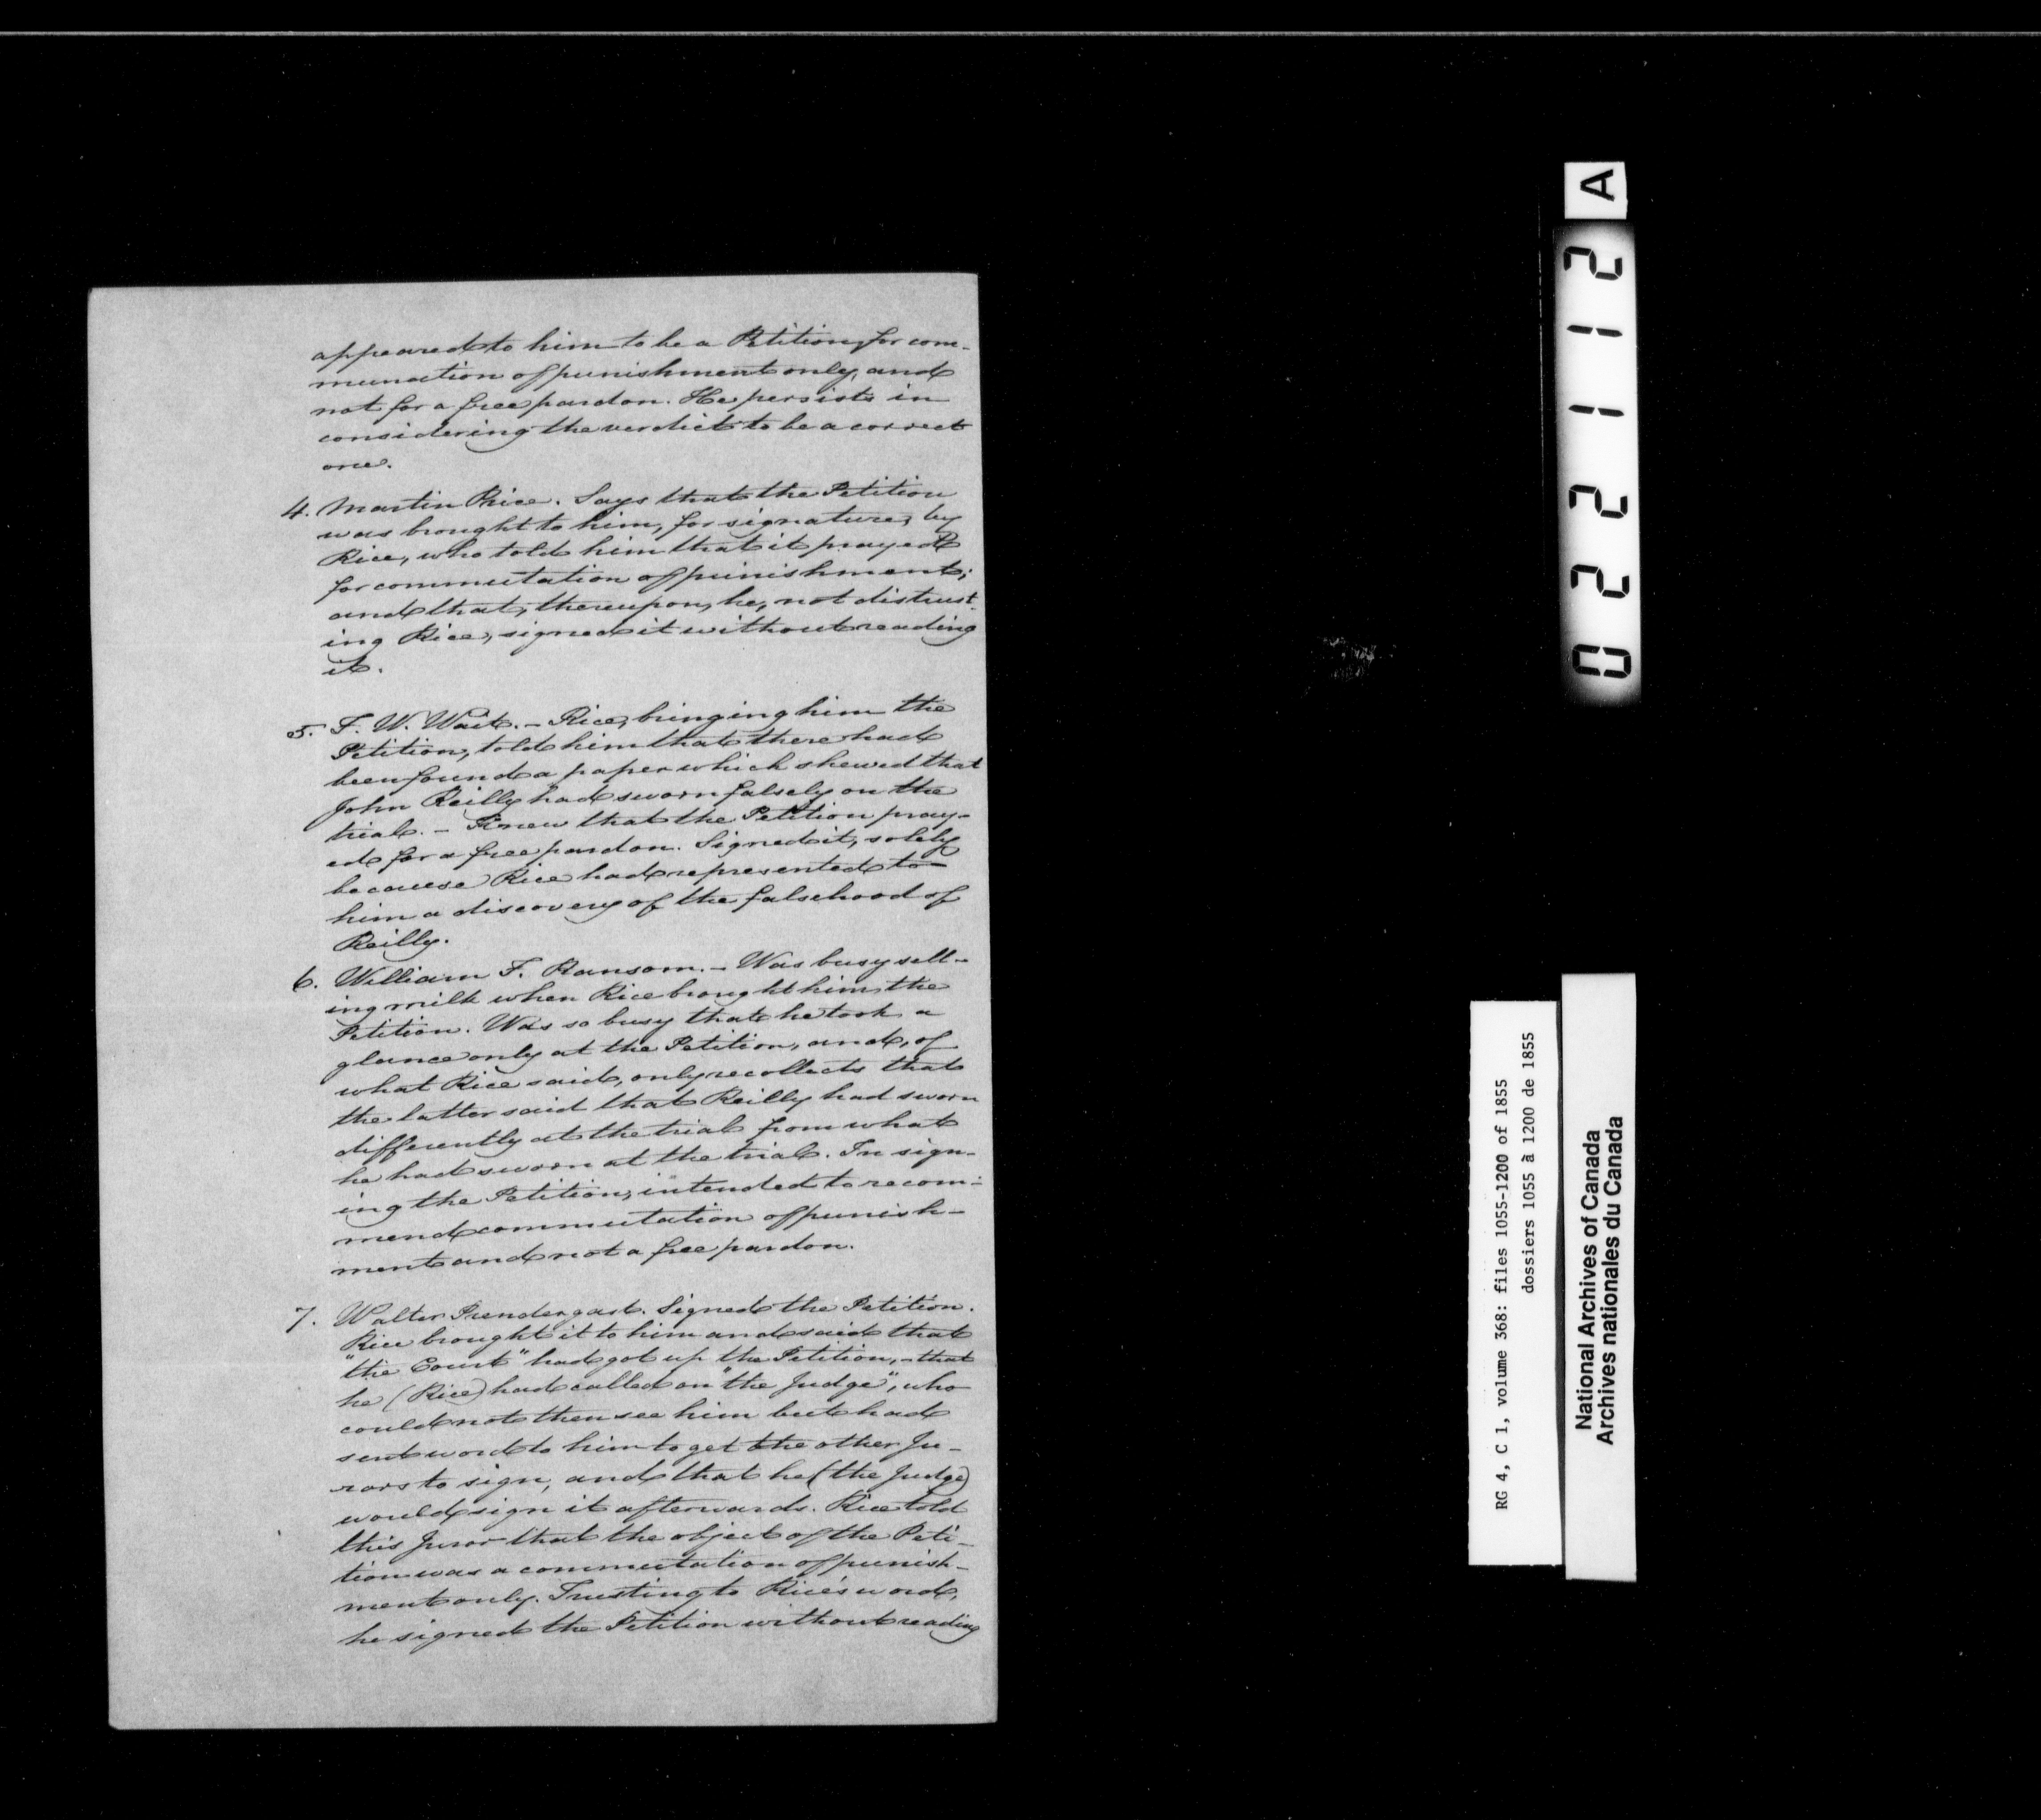 appeared to him to be a Petition for com-
munation of punishment only, and
not for a free pardon. He persists in
considering the verdict to be a correct
one.
4. Martin Rice. Says that the Petition
was brought to him, for signature, by
Rice, who told him that it prayed
for commutation of punishment;
and that, thereupon, he, not distrust-
ing Rice, signed it without reading
it.
5. F. W. Wait. - Rice, bringing him the
Petition, told him that there had
been found a paper which shewed that
John Reilly had sworn falsely on the
trial. - Knew that the Petition pray-
ed for a free pardon. Signed it, solely
because Rice had represented to
him a discovery of the falsehood of
Reilly.
6. William F. Ransom. - Was busy sell-
ing milk when Rice brought him the
Petition. Was so busy that he took a
glance only at the Petition, and, of
what Rice said, only recollects that
the latter said that Reilly had sworn
differently at the trial from what
he had sworn at the trial. In sign-
ing the Petition, intended to recom-
mend commutation of punish-
ment and not a free pardon.
7. Walter Prendergast. Signed the Petition.
Rice brought it to him and said that
"the Court" had got up the Petition, - that
he (Rice) had called on "the Judge", who
could not then see him but had
sent word to him to get the other Ju-
rors to sign, and that he (the Judge)
would sign it afterwards. Rice told
this Juror that the object of the Peti-
tion was a commutation of punish-
ment only. Trusting to Rice's word,
he signed the Petition without reading
022112 A
RG 4, C 1, volume 368: files 1055-1200 of 1855
dossiers 1055 à 1200 de 1855
National Archives of Canada
Archives nationales du Canada